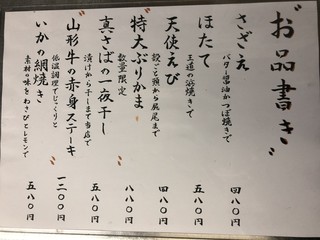 〝お品書き〟
さざえ
バター醤油かつぼ焼きで
四八〇円
ほたて
王道の浜焼きで
五八〇円
天使えび
殻ごと頭から尻尾まで
四八〇円
〝特大ぶりかま〟
数量限定
八八〇円
真さばの一夜干し
漬けから干しまで当店で
五八〇円
〝山形牛の赤身ステーキ〟
低温調理でじっくりと
一二〇〇円
いかの網焼き
素材の味をわさびとレモンで
五八〇円